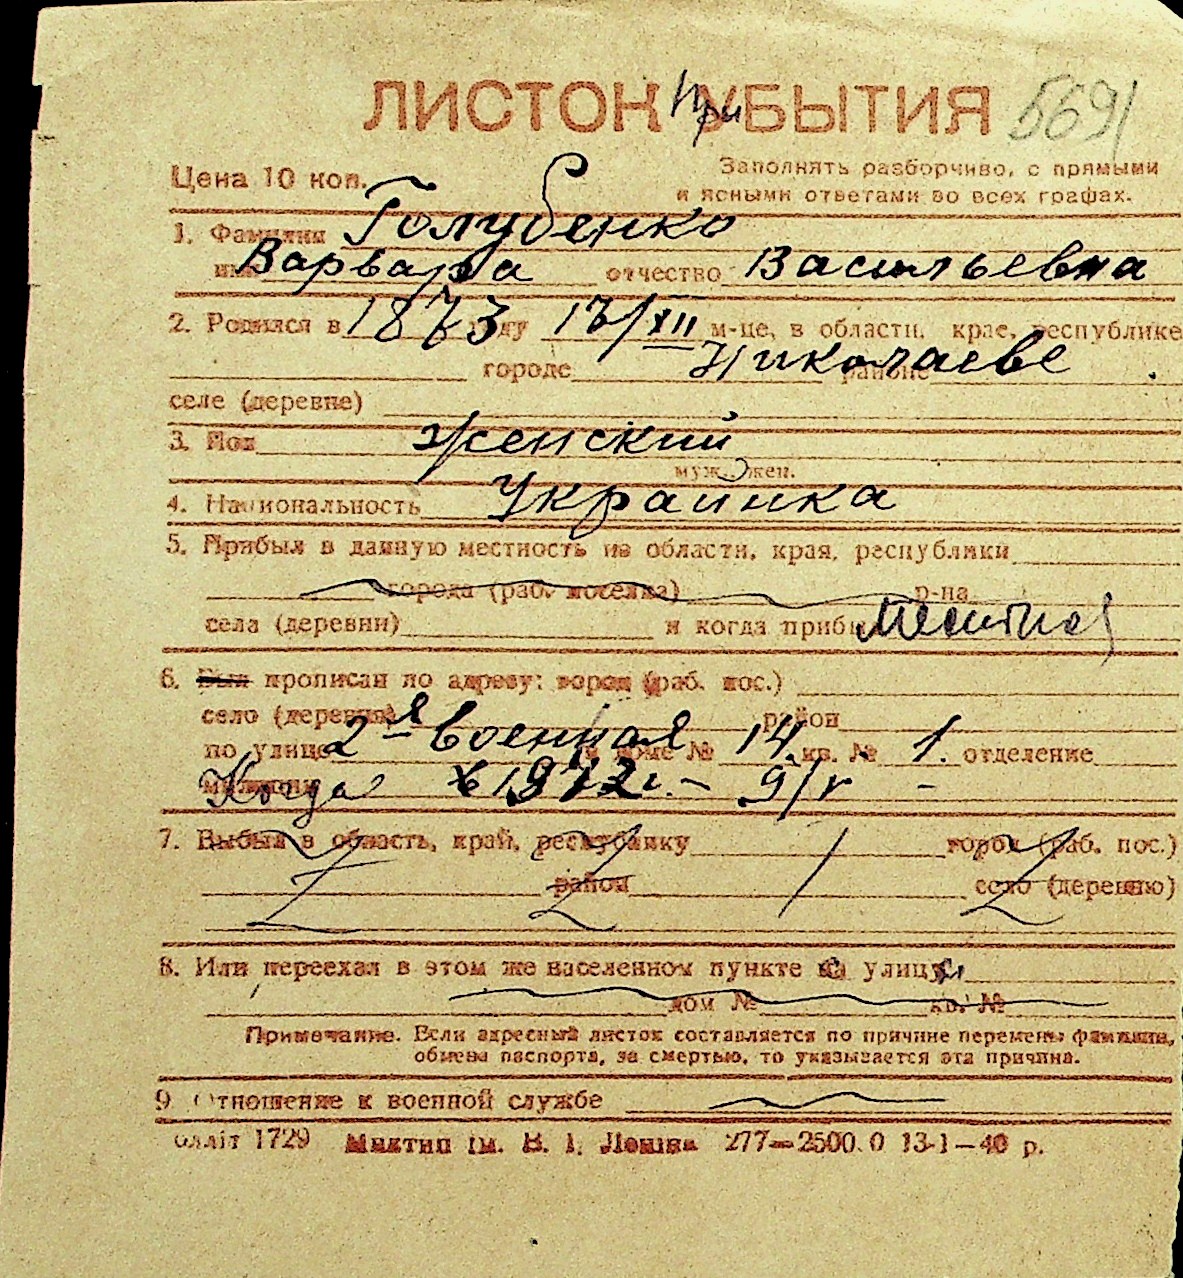 ЛИСТОК УБЫТИЯ При 5691
Цена 10 коп. Заполнять разборчиво, с прямыми
и ясными ответами во всех графах.
1. Фамилия Голубенко
имя Варвара отчество Васильевна
2. Родился в 1873 году 17/XII м-це, в области, крае, республике
городе Николаеве районе
селе (деревне)
3. Пол женский
муж. жен.
4. Национальность Украинка
5. Прибыл в данную местность из области, края, республики
города (раб. поселка) р-на
села (деревни) и когда прибыл местная
6. Был прописан по адресу: город (раб. пос.)
село (деревня) район
по улице 2-я Военная в доме № 14 кв. № 1. отделение
милиции Когда в 1942 г. - 9/V -
7. Выбыл в область, край, республику город (раб. пос.)
район село (деревню)
8. Или переехал в этом же населенном пункте с улицы
дом № кв. №
Примечание. Если адресный листок составляется по причине перемены фамилии,
обмена паспорта, за смертью, то указывается эта причина.
9 Отношение к военной службе
олліт 1729 Миктип ім. В. І. Леніна 277—2500.0 13-1—40 р.